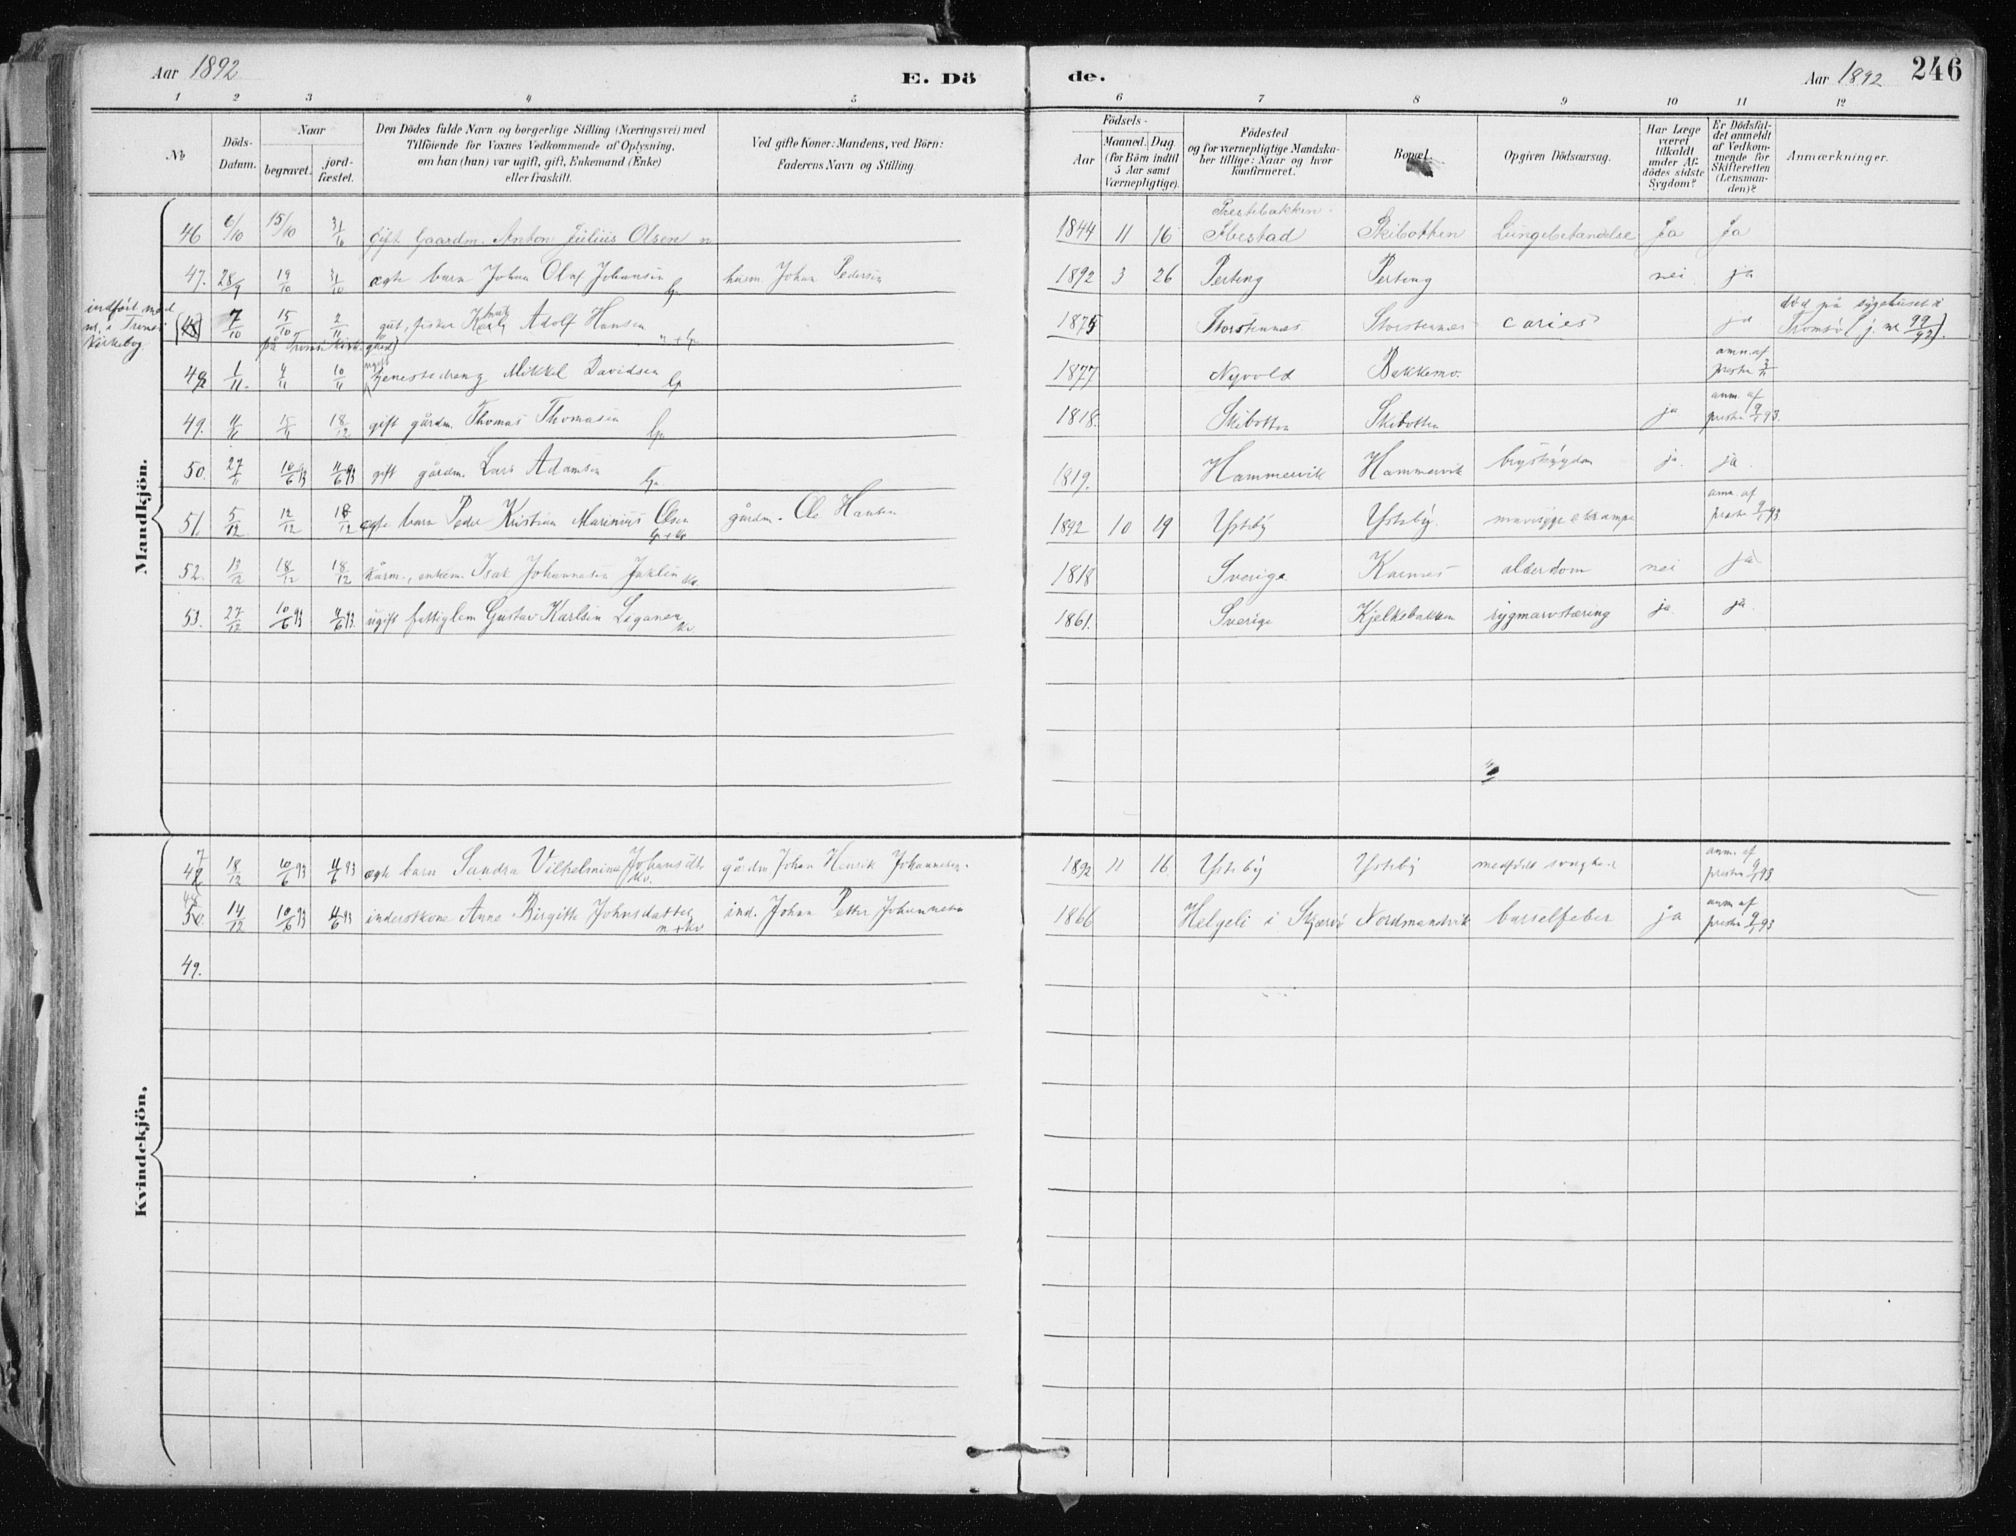 Aar 1892 E. Dö de. Aar 1892 246
1 2 3 4 5 6 7 8 9 10 11 12
No
Döds-Datum.
Naar
begravet.
jord-fæstet.
Den Dödes fulde Navn og borgerlige Stilling (Næringsvei) med
Tilföiende for Voxnes Vedkommende af Oplysning,
om han (hun) var ugift, gift, Enkemand (Enke)
eller fraskilt.
Ved gifte Koner: Mandens, ved Börn:
Faderens Navn og Stilling.
Födsels-
Aar
Maaned. Dag
(for Börn indtil
5 Aar samt
Værnepligtige).
Födested
og for værnepligtige Mandska-
ber tillige: Naar og hvor
konfirmeret.
Bopæl.
Opgiven Dödsaarsag.
Har Læge
været
tilkaldt
under Af-
dödes sidste
Sygdom?
Er Dödsfal-
det anmeldt
af Vedkom-
mende for
Skifteretten
(Lensman-
den)?
Anmærkninger.
Mandkjön.
46 6/10 15/10 31/10 Gift Gaardm. Anton Julius Olsen n 1844 11 16 Prestebakken Ibestad Skibotten Lungebetændelse Ja Ja
47. 28/9 19/10 31/10 ægte barn Johan Olaf Johansen lp husm. Johan Pedersen 1892 3 26 Perteng Perteng nei ja
indført med nr. i Tromsø Kirkebog. 7/10 15/10 2/11 på Tromsø Kirkegård) gut, fisker Adolf Hansen n + lp 1875 Storstennes Storstennes caries ja död på sygehuset i Tromsö (j. nr 99/92).
48 1/11 4/11 10/11 ugift tjenestedreng Mikkel Davidsen lp 1877 Nyvold Bakkemo. anm. af presten
49. 4/11 15/11 18/12 gift gårdm. Thomas Thomasen lp 1818. Skibotten Skibotten ja anm. af presten 9/1 93.
50. 27/11 10/6 93 11/6 93 gift gårdm. Lars Adamsen lp 1819. Hammervik Hammervik brystsygdom ja. ja.
51. 5/12 12/12 18/12 ægte barn Peder Kristian Marenius Olsen lp + kv gårdm. Ole Hansen 1892 10 19 Ysteby Ysteby. mavesyge & krampe anm. af presten 9/1 93
52. 13/12 18/12 18/12 kårm., enkem. Isak Johannesen Jaklin kv. 1818 Sverige Karnes alderdom nei ja
53. 27/12 10/6 93 11/6 93. ugift fattiglem Gustav Karlsen Liganen kv 1861. Sverige Kjelksbakken rygmarvstæring ja. ja.
Kvindekjön.
47 18/12 10/6 93 11/6 93 ægte barn Sandra Vilhelmine Johansdtr kv. gårdm Johan Henrik Johannesen. 1892 11 16 Ysteby Ysteby medfødt svaghed anm. af presten 9/1 93
48 14/12 10/6 93 11/6 93 inderstkone Anne Birgitte Johnsdatter n + kv ind. Johan Petter Johannesen 1866 Helgeli i Skjervø Nordmandvik barselfeber ja anm. af presten 9/1 93
49.